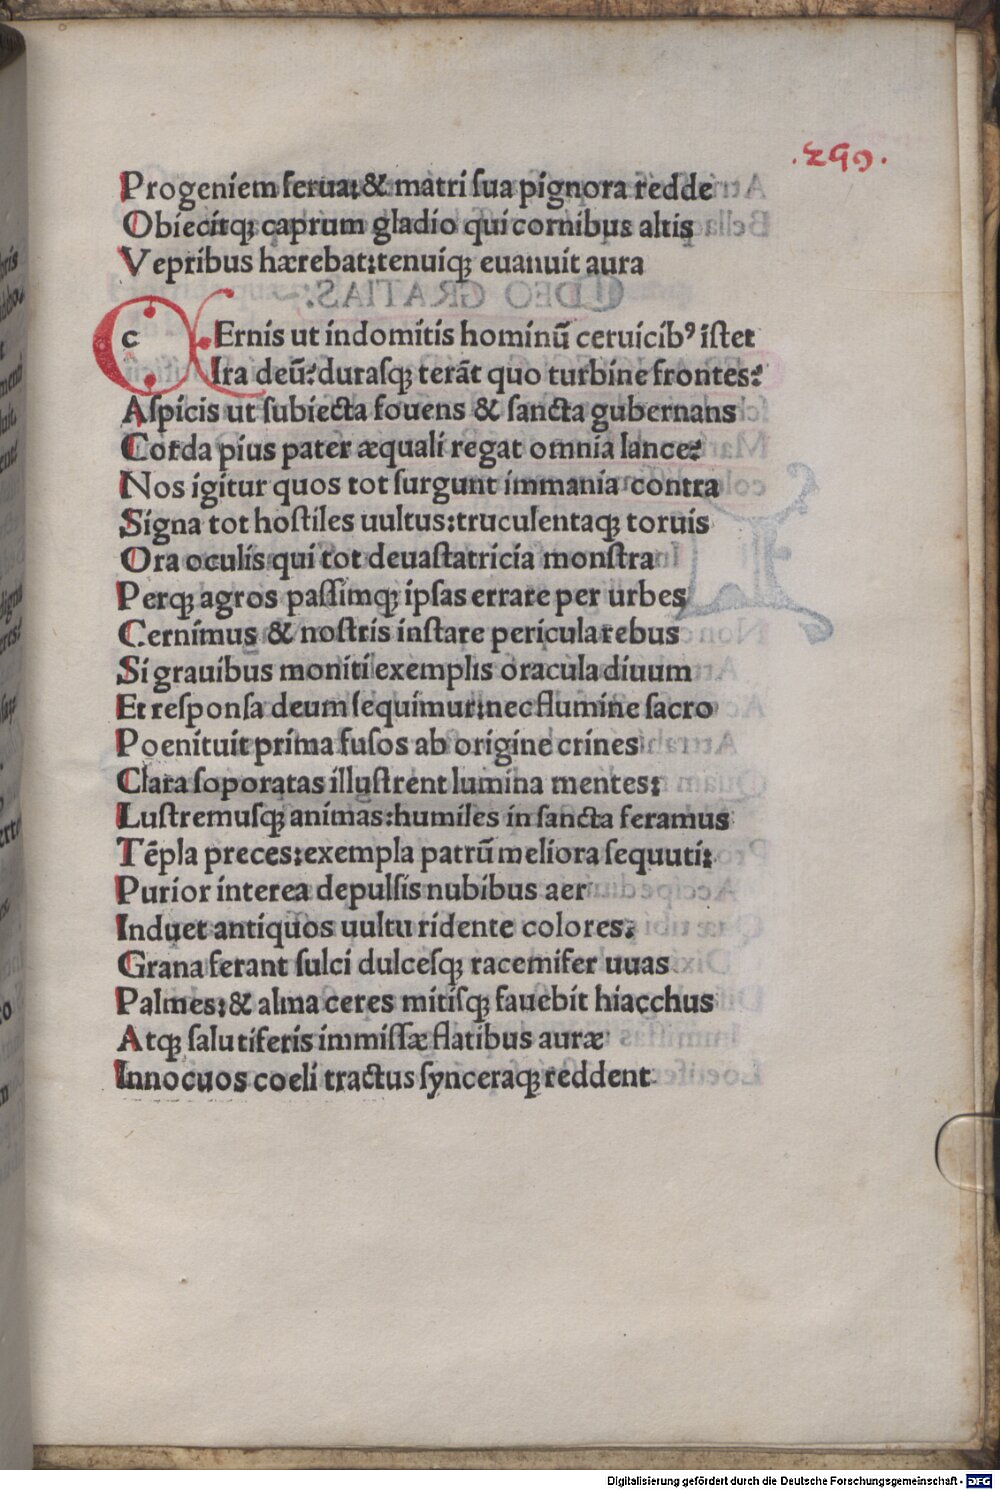 .299.
Progeniem ſerua:& matri ſua pignora redde
Obiecitqꝫ caprum gladio qui cornibus altis
Vepribus hærebat:tenuiqꝫ euanuit aura
cErnis ut indomitis hominū ceruicibꝰ iſtet
Ira deū?duraſqꝫ terāt quo turbine frontes?
Aſpicis ut ſubiecta fouens & ſancta gubernans
Corda pius pater æquali regat omnia lance?
Nos igitur quos tot ſurgunt immania contra
Signa tot hoſtiles uultus:truculentaqꝫ toruis
Ora oculis qui tot deuaſtatricia monſtra
Perqꝫ agros paſſimqꝫ ipſas errare per urbes
Cernimus & noſtris inſtare pericula rebus
Si grauibus moniti exemplis oracula diuum
Et reſponſa deum ſequimur:nec flumine ſacro
Poenituit prima fuſos ab origine crines
Clara ſoporatas illuſtrent lumina mentes:
Luſtremuſqꝫ animas:humiles in ſancta feramus
Tēpla preces:exempla patrū meliora ſequuti:
Purior interea depulſis nubibus aer
Induet antiquos uultu ridente colores.
Grana ferant ſulci dulceſqꝫ racemifer uuas
Palmes:& alma ceres mitiſqꝫ fauebit hiacchus
Atqꝫ ſalutiferis immiſſæ flatibus auræ
Innocuos coeli tractus ſynceraqꝫ reddent
Digitalisierung gefördert durch die Deutsche Forschungsgemeinschaft - DFG